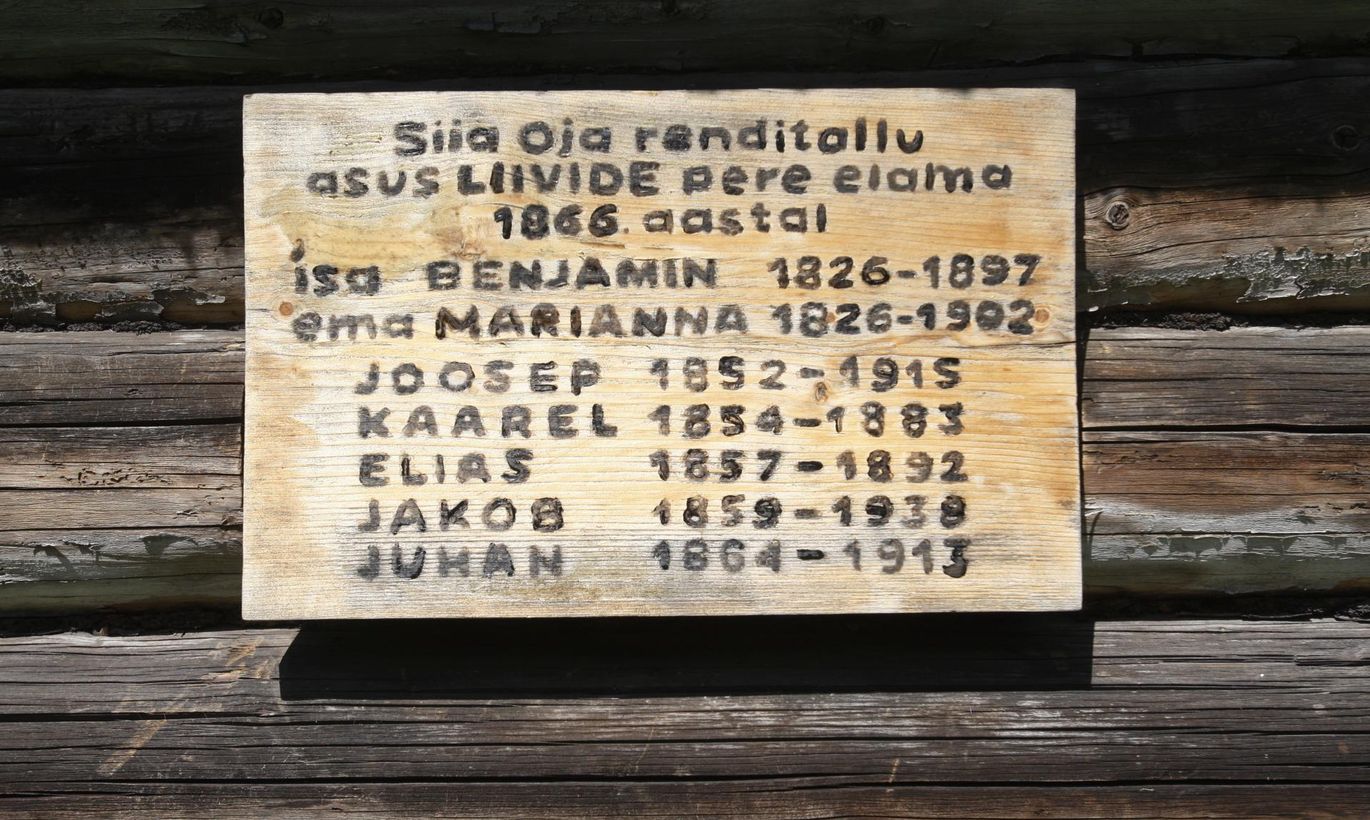 Siia Oja renditallu
asus LIIVIDE pere elama
1866. aastal
isa BENJAMIN 1826-1897
ema MARIANNA 1826-1902
JOOSEP 1852-1915
KAAREL 1854-1883
ELIAS 1857-1892
JAKOB 1859-1938
JUHAN 1864-1913